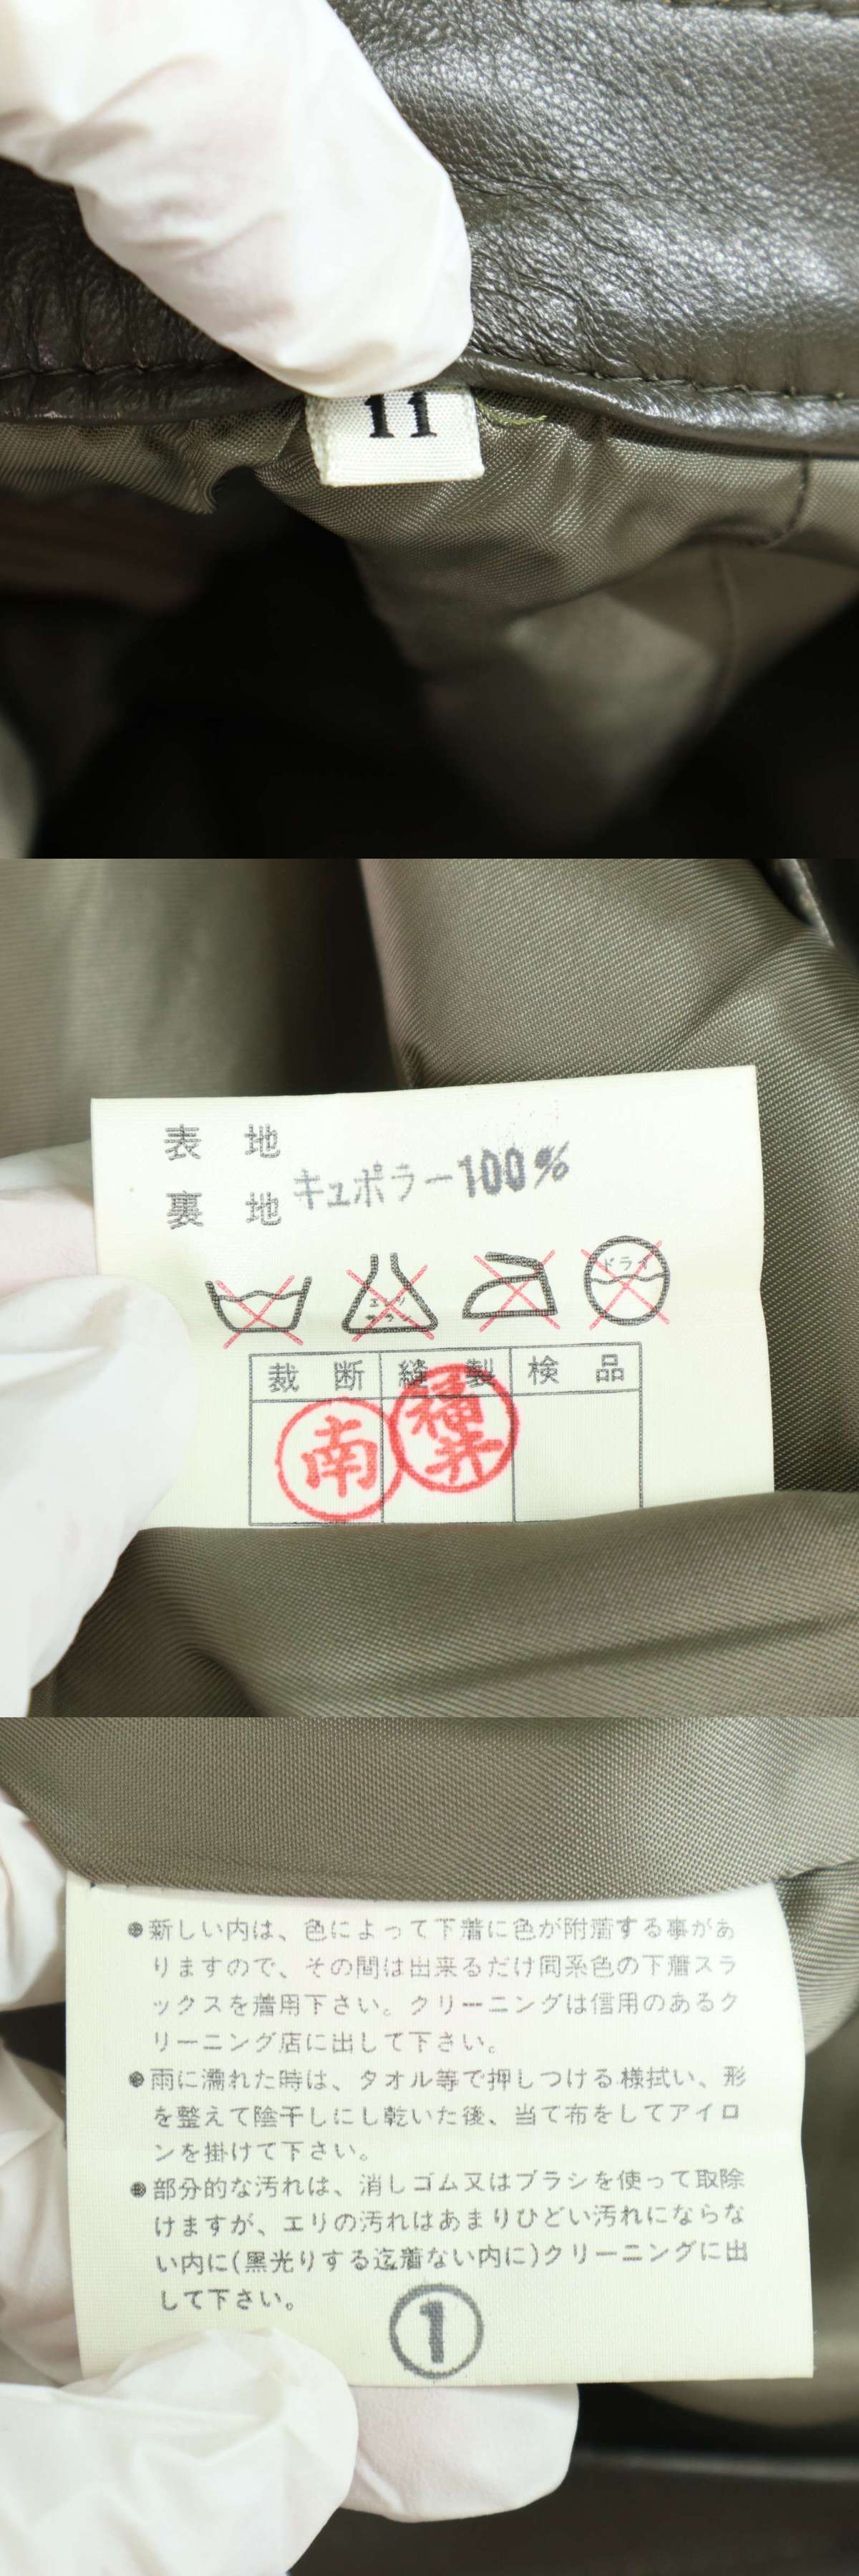 11
表 地
キュポラー100%
裏 地
エンソ
サラシ
ドライ
裁 断 縫 製 検 品
南
種井
●新しい内は、色によって下着に色が附着する事があ
りますので、その間は出来るだけ同系色の下着スラ
ックスを着用下さい。クリーニングは信用のあるク
リーニング店に出して下さい。
●雨に濡れた時は、タオル等で押しつける様拭い、形
を整えて陰干しにし乾いた後、当て布をしてアイロ
ンを掛けて下さい。
●部分的な汚れは、消しゴム又はブラシを使って取除
けますが、エリの汚れはあまりひどい汚れにならな
い内に(黒光りする迄着ない内に)クリーニングに出
して下さい。
①